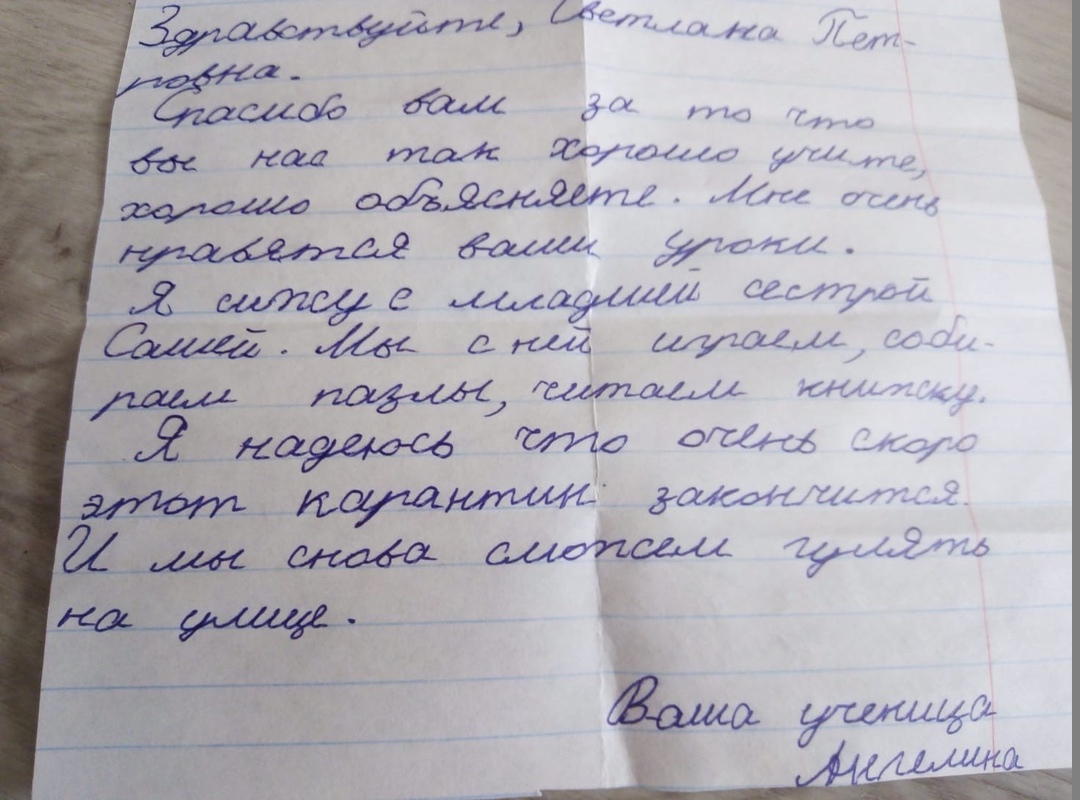 Здравствуйте, Светлана Пет-
ровна.
Спасибо вам за то что
вы нас так хорошо учите,
хорошо объясняете. Мне очень
нравятся ваши уроки.
Я сижу с младшей сестрой
Сашей. Мы с ней играем, соби-
раем пазлы, читаем книжку.
Я надеюсь что очень скоро
этот карантин закончится.
И мы снова сможем гулять
на улице.
Ваша ученица
Ангелина